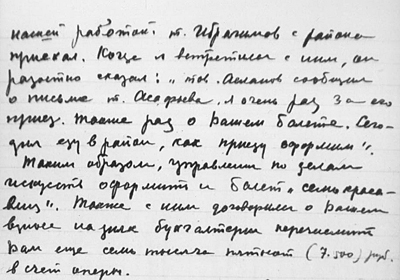 нашей работой. т. Ибрагимов с района
приехал. Когда я встретился с ним, он
радостно сказал: „тов. Асланов сообщил
о письме т. Асафьева. Я очень рад за его
приезд. Также рад о Вашем балете. Сего-
дня еду в район, как приеду оформим".
Таким образом, управление по делам
искусств оформит и балет „семь краса-
виц". Также с ним договорились о Вашем
на днях бухгалтерия перечислит
Вам еще семь тысяч пятьсот (7.500) руб.
в счет оперы.